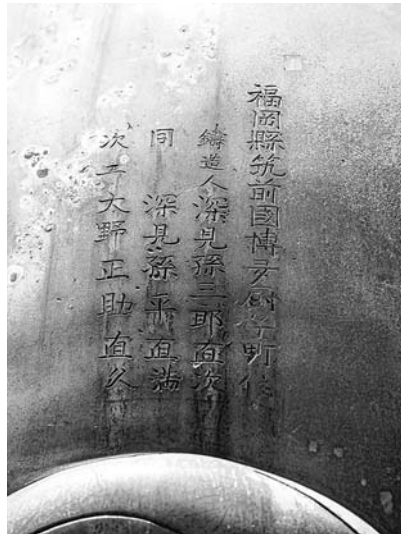 福岡縣筑前國博多厨子町住
鑄造人 深見孫三郎直次
同 深見孫平直満
次工 大野正助直久